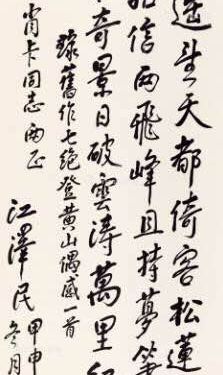 遥望天都倚客松蓮
始信两飛峰且持夢筆
奇景日破雲濤萬里紅
録舊作七绝登黄山偶感一首
肖卡同志正
江澤民 甲申冬月